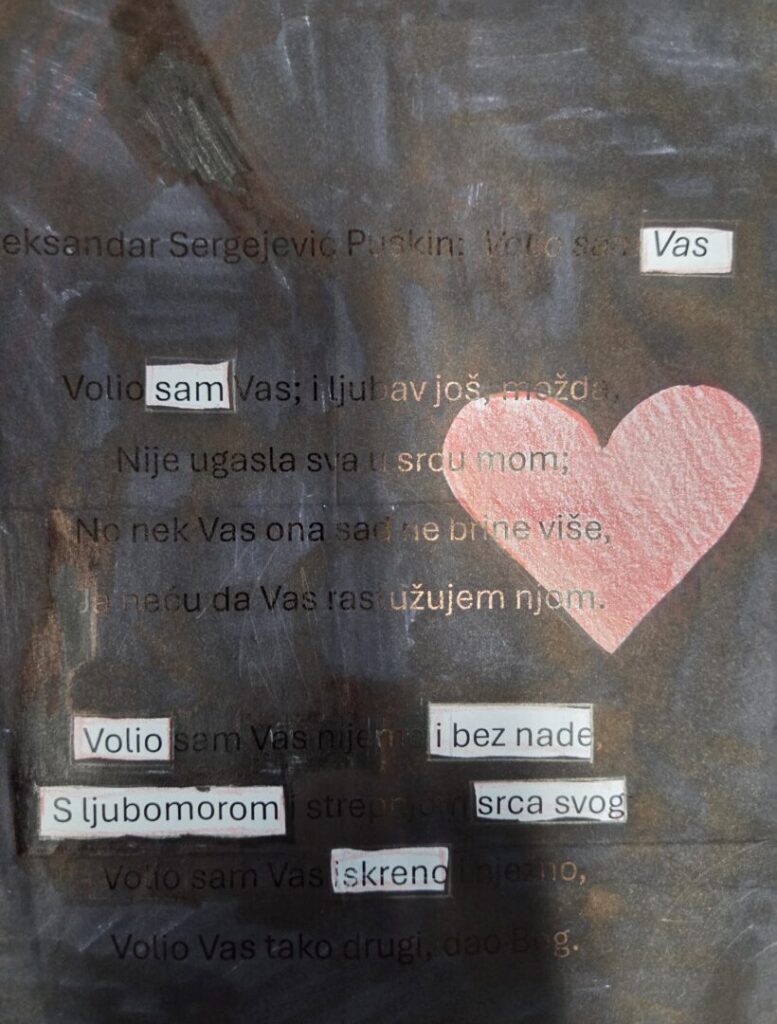 eksandar Sergejević Puškin: Volio sam Vas
Volio sam Vas; i ljubav još, možda,
Nije ugasla sva u srcu mom;
No nek Vas ona sad ne brine više,
Ja neću da Vas rastužujem njom.
Volio sam Vas nijemo i bez nade,
S ljubomorom i strepnjom srca svog
Volio sam Vas iskreno i nježno,
Volio Vas tako drugi, dao Bog.